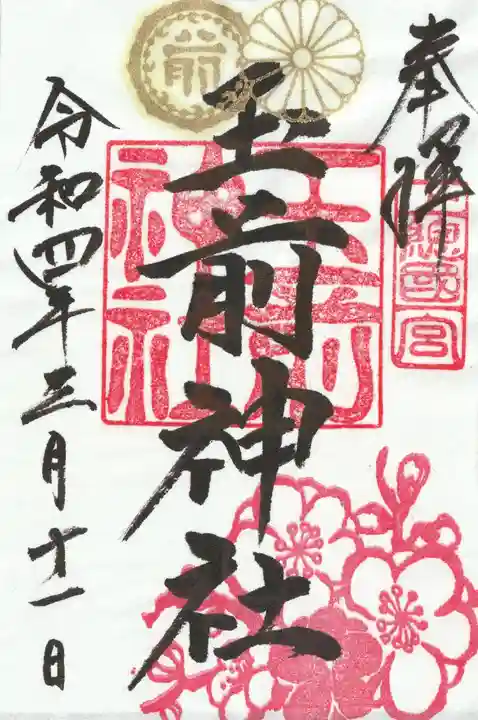 奉拝
玉前神社
玉前神社
前
令和四年三月十一日